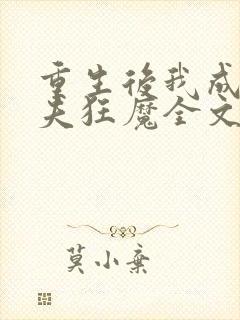 重生後我成
夫狂魔全文
莫小棄